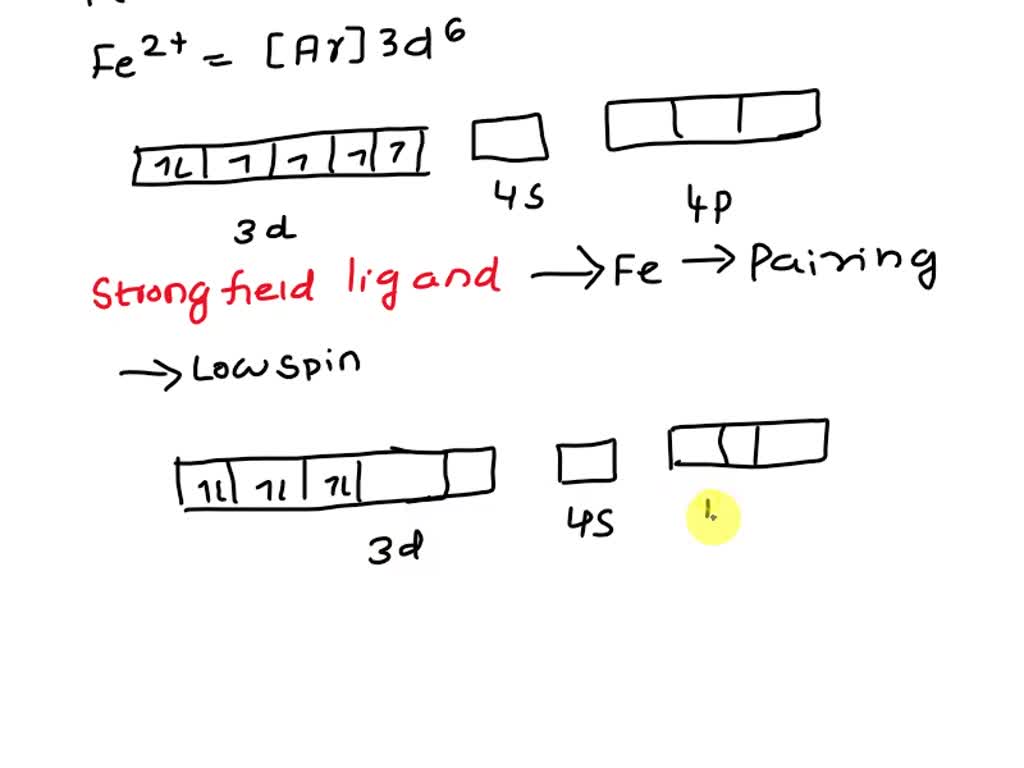 Fe²⁺ = [Ar] 3d⁶
1L 1 1 1 1
3d 4s 4p
Strong field ligand → Fe → Pairing
→ Low spin
1L 1L 1L
3d 4s